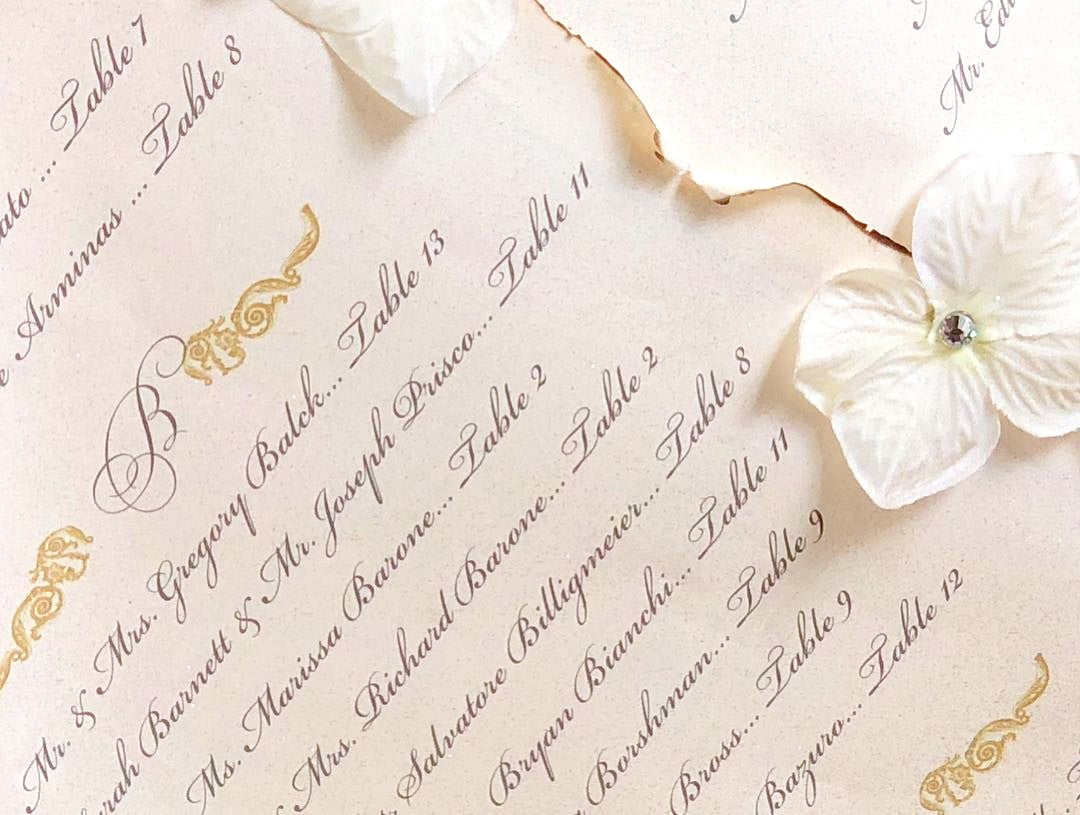 Table 7
Arminas ... Table 8
B
Mr. & Mrs. Gregory Balck... Table 13
Barnett & Mr. Joseph Prisco... Table 11
Ms. Marissa Barone... Table 2
Mrs. Richard Barone... Table 2
Salvatore Billigmeier... Table 8
Bryan Bianchi... Table 11
Borshman... Table 9
Bross... Table 9
Bazuro... Table 12
Mr.